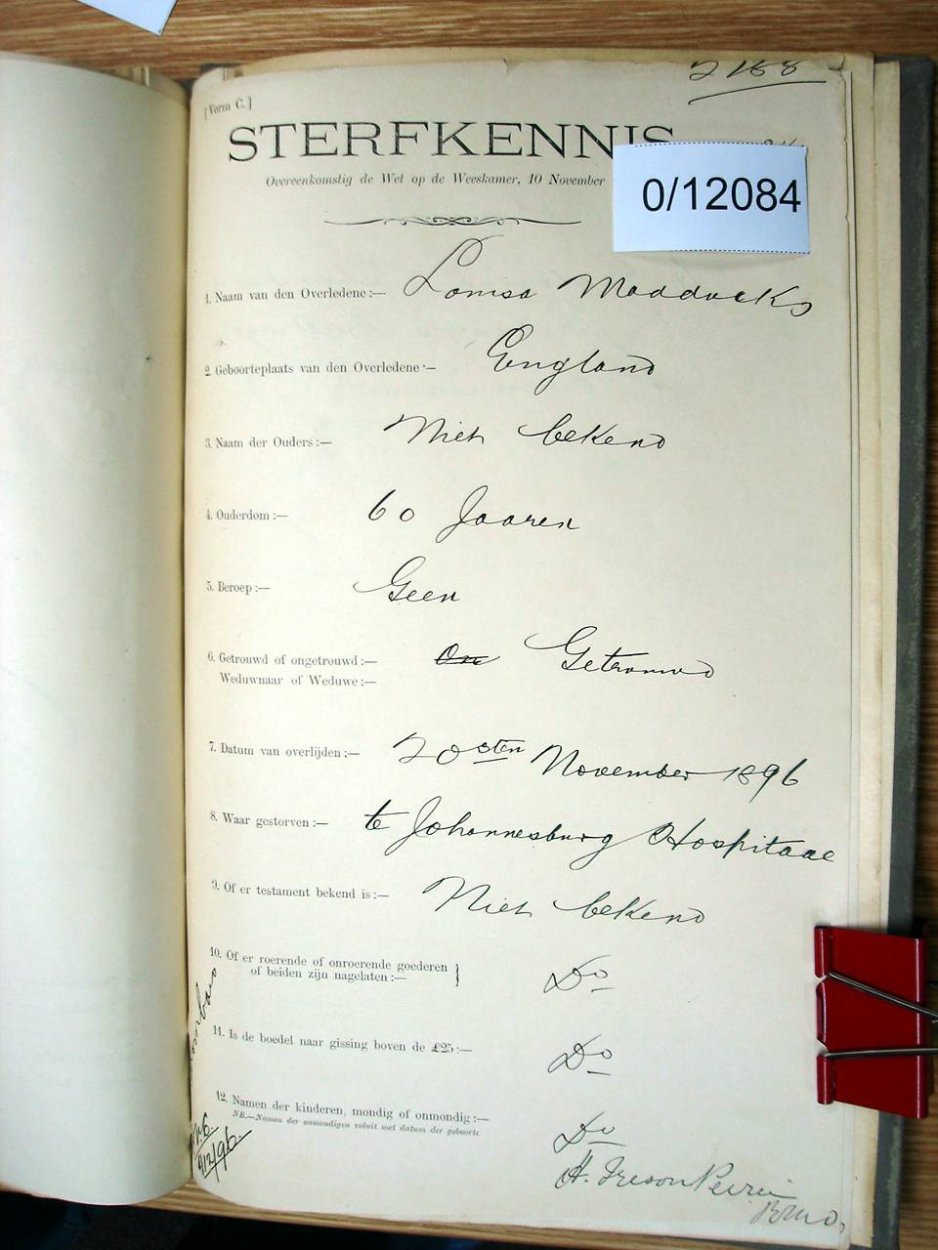 [Vorm C.]
STERFKENNIS
Overeenkomstig de Wet op de Weeskamer, 10 November
0/12084
1. Naam van den Overledene:— Louisa Maddocks
2. Geboorteplaats van den Overledene:— England
3. Naam der Ouders:— Niet bekend
4. Ouderdom:— 60 Jaaren
5. Beroep:— Geen
6. Getrouwd of ongetrouwd:— Getrouwd
Weduwnaar of Weduwe:—
7. Datum van overlijden:— 20sten November 1896
8. Waar gestorven:— te Johannesburg Hospitaal
9. Of er testament bekend is:— Niet bekend
10. Of er roerende of onroerende goederen
of beiden zijn nagelaten:— } Do
11. Is de boedel naar gissing boven de £25:— Do
12. Namen der kinderen, mondig of onmondig:—
NB.—Namen der onmondigen voluit met datum der geboorte
Do